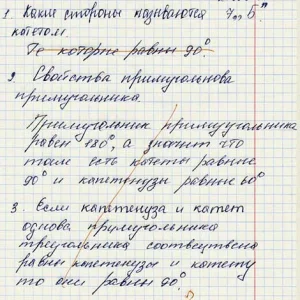 1. Какие стороны называются 7 "Б"
катетом.
Те которые равны 90°.
2. Свойства примуголънова
примуголъника.
Примуголъник примууголъника
равен 180°, а значит что
там есть катеты равные
90° и капетнузы равные 60°
3. Если капетенуза и катет
однова примуголъника
треуголъника соотвецтвена
равны капетенузы и катету
то они равны 90°.